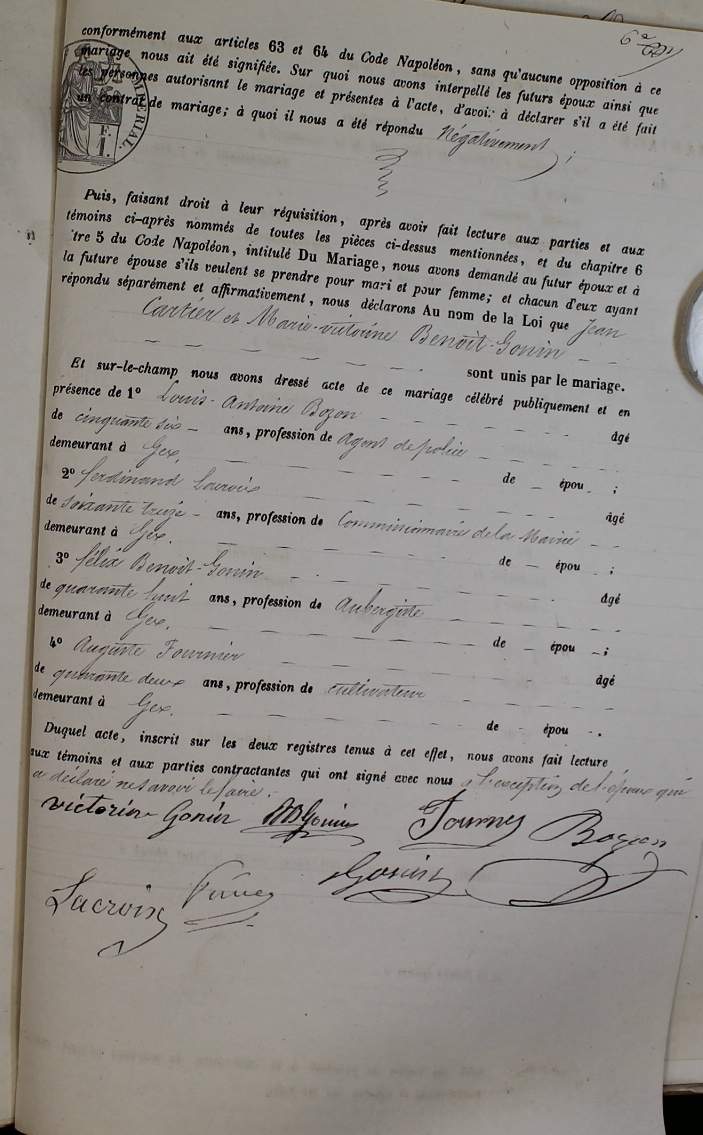 conformément aux articles 63 et 64 du Code Napoléon, sans qu'aucune opposition à ce
mariage nous ait été signifiée. Sur quoi nous avons interpellé les futurs époux ainsi que
les personnes autorisant le mariage et présentes à l'acte, d'avoir à déclarer s'il a été fait
un contrat de mariage; à quoi il nous a été répondu Négativement;
Puis, faisant droit à leur réquisition, après avoir fait lecture aux parties et aux
témoins ci-après nommés de toutes les pièces ci-dessus mentionnées, et du chapitre 6
tre 5 du Code Napoléon, intitulé Du Mariage, nous avons demandé au futur époux et à
la future épouse s'ils veulent se prendre pour mari et pour femme; et chacun d'eux ayant
répondu séparément et affirmativement, nous déclarons Au nom de la Loi que Jean
Cartier et Marie-victorine Benoit-Gonin
sont unis par le mariage.
Et sur-le-champ nous avons dressé acte de ce mariage célébré publiquement et en
présence de 1° Louis-Antoine Bozon âgé
de cinquante six ans, profession de Agent de police
demeurant à Gex, de épou ;
2° ferdinand Lacroix âgé
de soixante treize ans, profession de Commissionnaire de la Mairie
demeurant à Gex. de épou ;
3° félix Benoit-Gonin âgé
de quarante huit ans, profession de Aubergiste
demeurant à Gex, de épou ;
4° Auguste Fournier âgé
de quarante deux ans, profession de cultivateur
demeurant à Gex. de épou .
Duquel acte, inscrit sur les deux registres tenus à cet effet, nous avons fait lecture
aux témoins et aux parties contractantes qui ont signé avec nous à l'exception de l'époux qui
a déclaré ne savoir le faire.
victorin Gonin Gonin Fourny Bozon
Lacroix Gonin